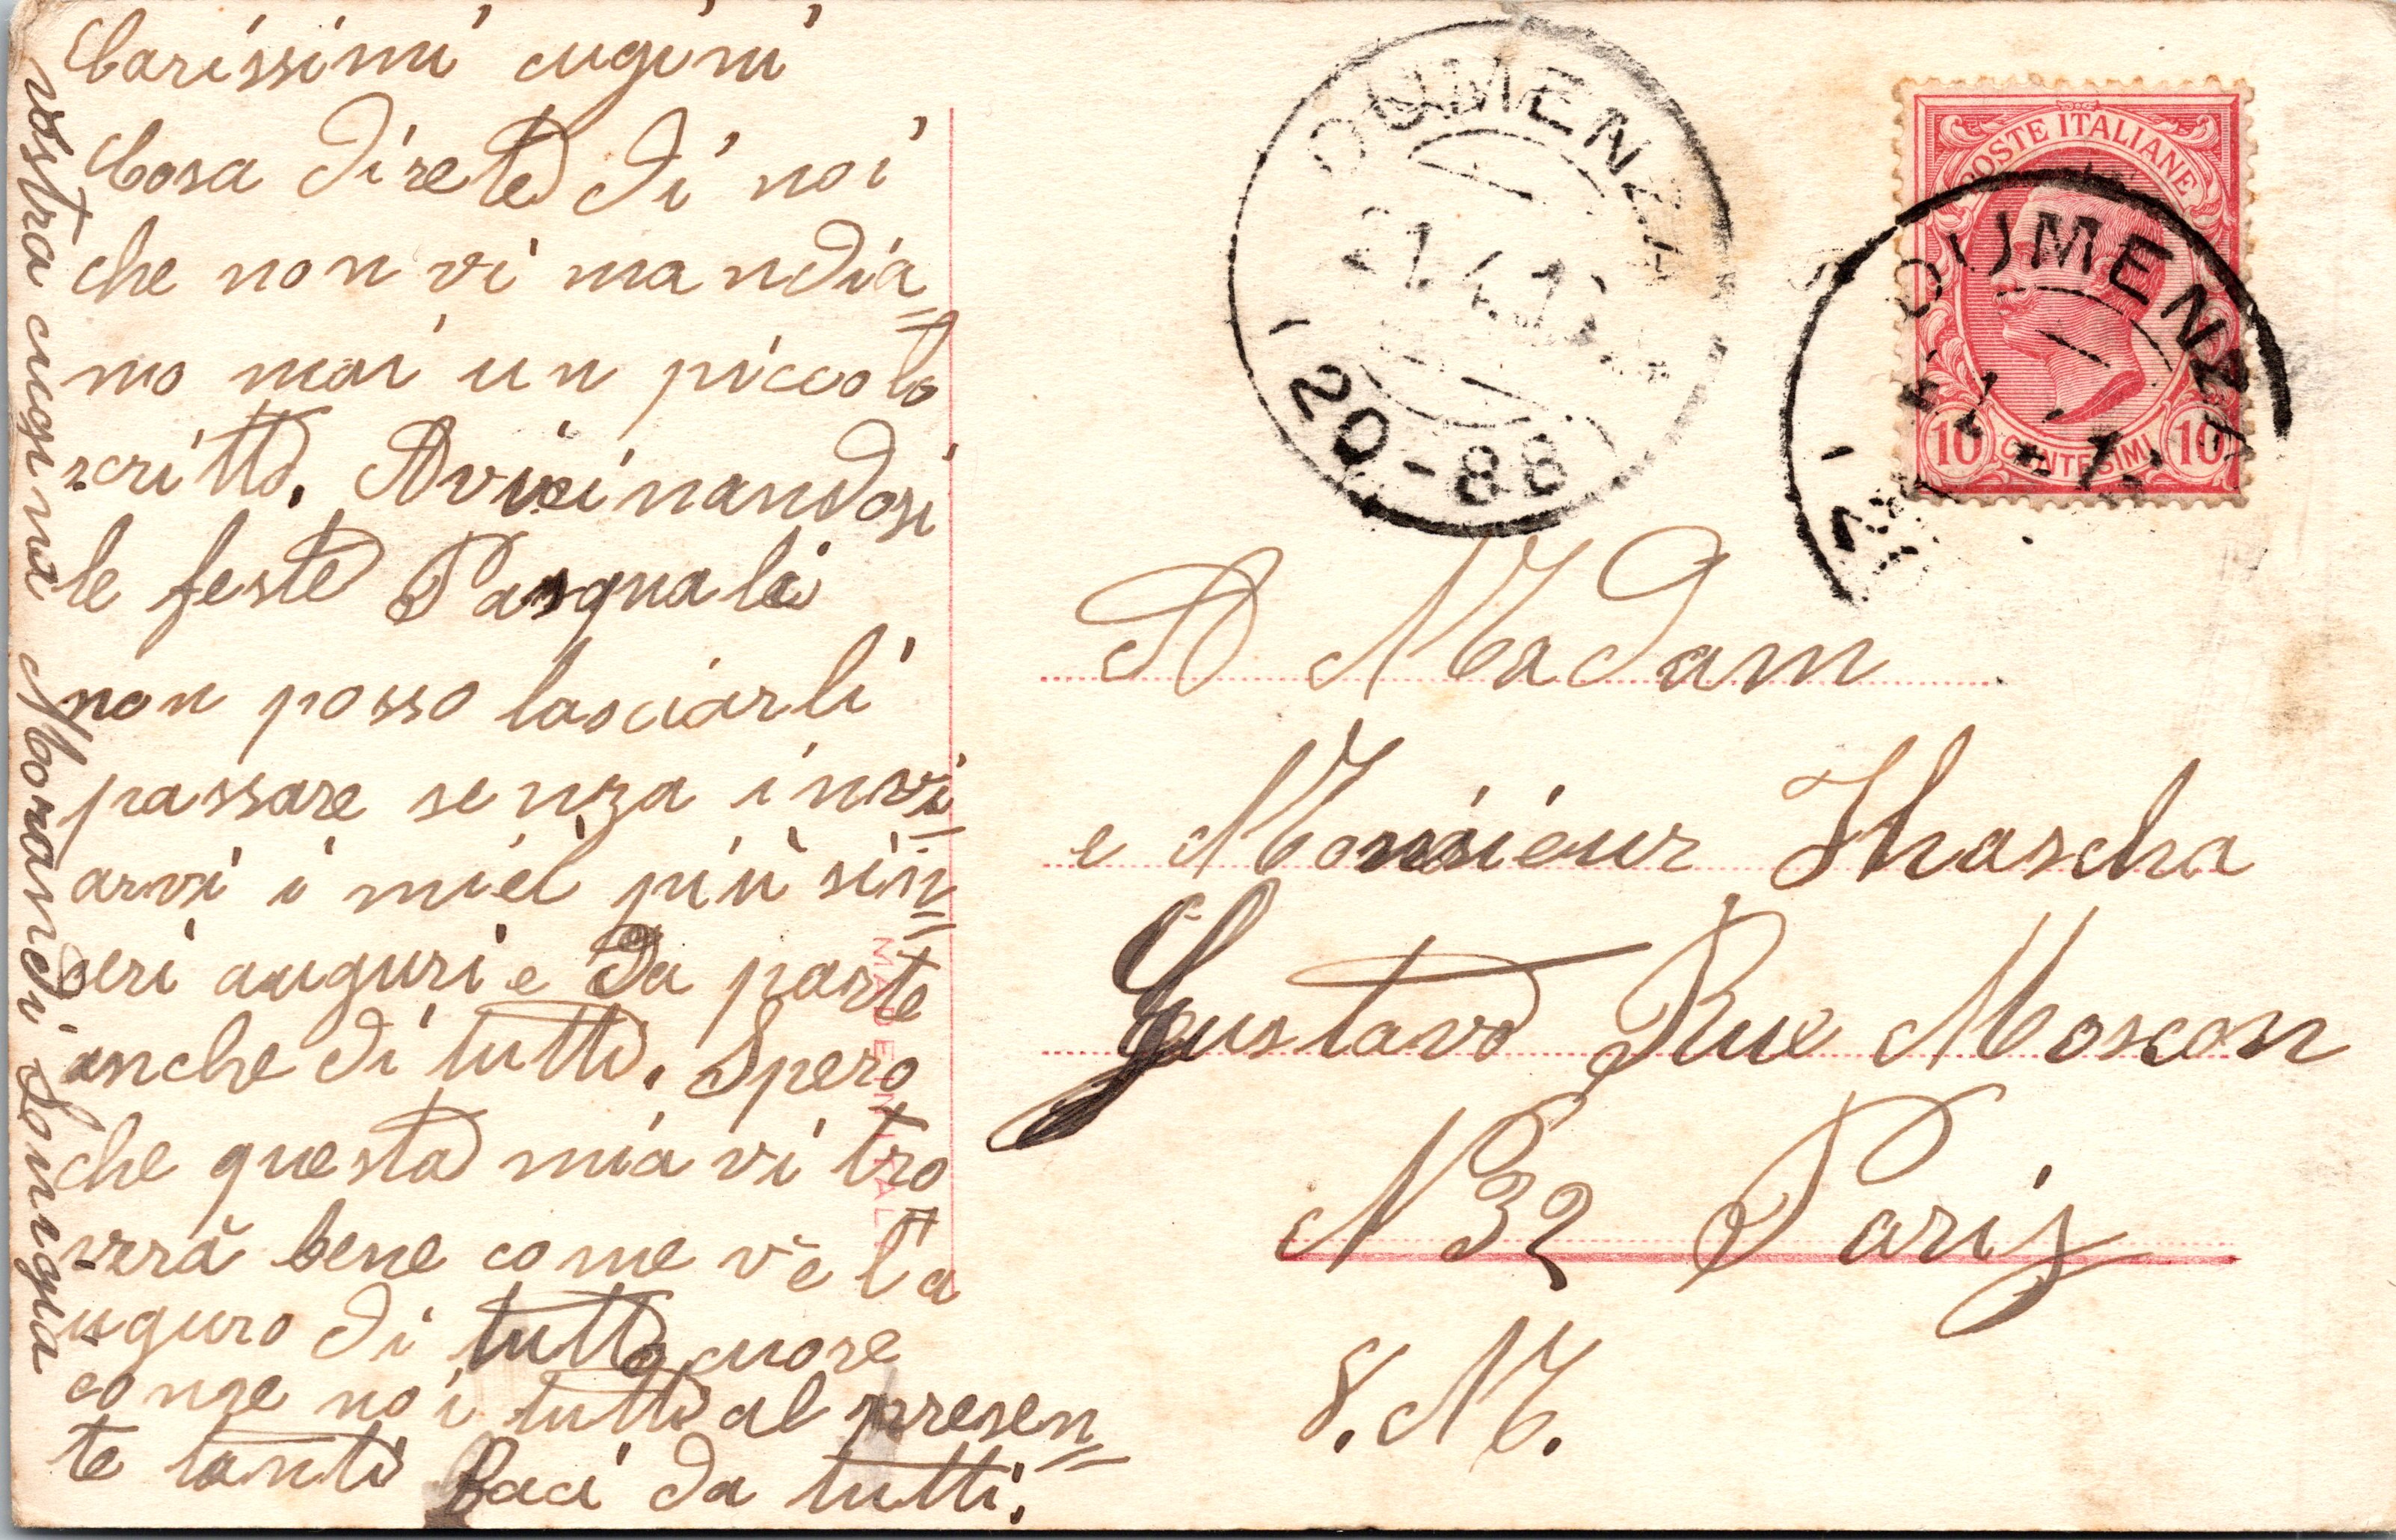 Carissimi cugini
Cosa direte di noi
che non vi mandia=
mo mai un piccolo
scritto. Avvicinandosi
le feste Pasquali
non posso lasciarli
passare senza invi=
arvi i miei più sin=
ceri auguri e da parte
anche di tutti. Spero
che questa mia vi tro
verà bene come ve l'a
uguro di tutto cuore
come noi tutti al presen=
te tanti Baci da tutti.
vostra cugina Morandi
MADE IN ITALY
DUMENZA
21.4.1
20-88
POSTE ITALIANE
10 CENTESIMI 10
DUMENZA
A Madam
e Monsieur Thascha
Gustavo Rue Moscou
N 32 Paris
S.M.